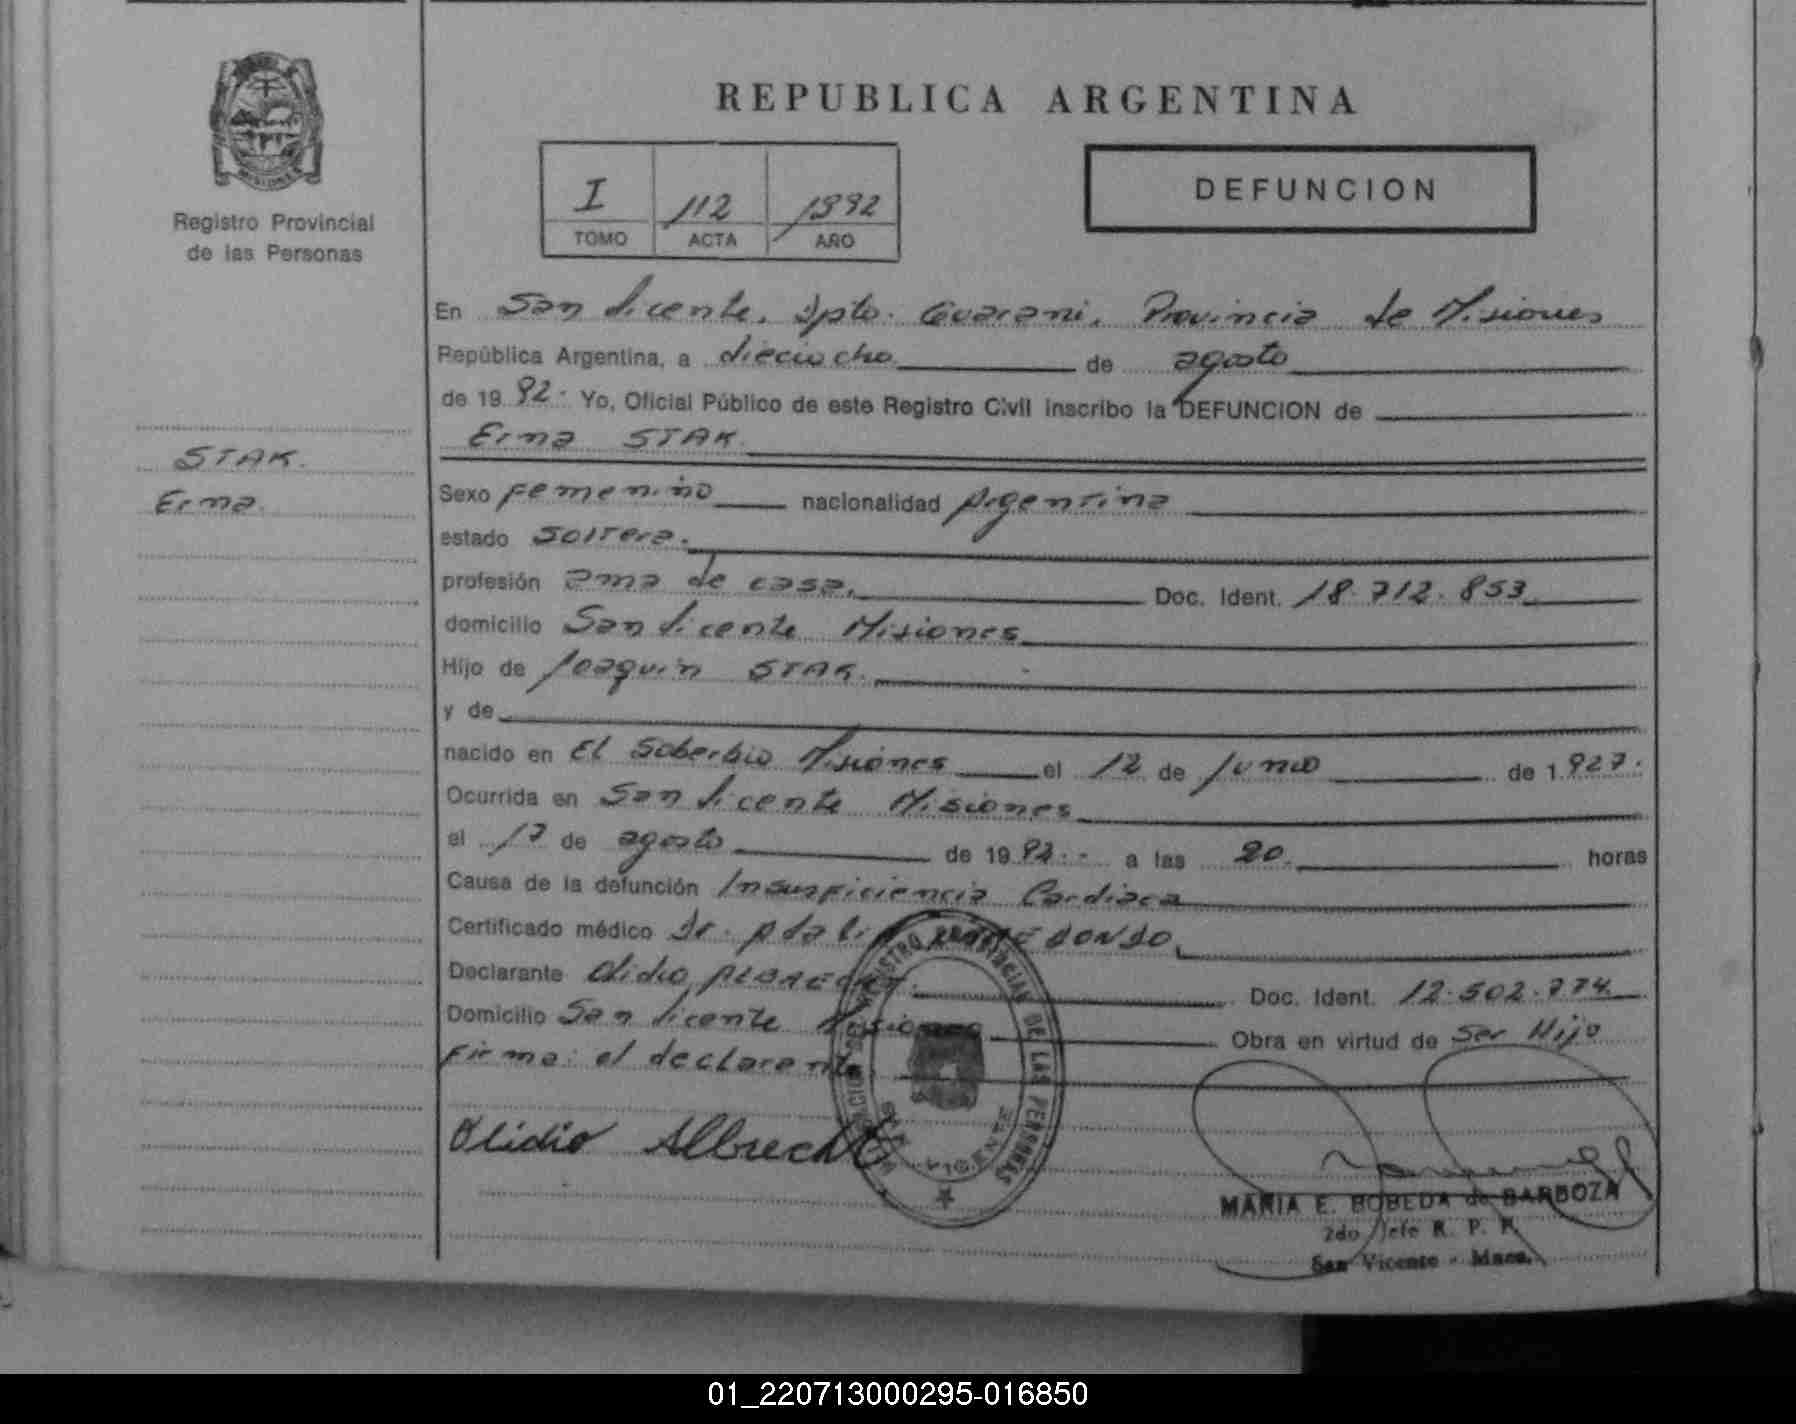 REPUBLICA ARGENTINA
MISIONES
Registro Provincial
de las Personas
I 112 1992
TOMO ACTA AÑO
DEFUNCION
En San Vicente, Dpto. Guarani, Provincia de Misiones
República Argentina, a dieciocho de agosto
de 19 92.- Yo, Oficial Público de este Registro Civil inscribo la DEFUNCION de
Erma STAK.
STAK.
Erma.
Sexo femenino nacionalidad Argentina
estado soltera.
profesión ama de casa. Doc. Ident. 18.712.853
domicilio San Vicente Misiones
Hijo de Joaquin STAK.
y de
nacido en El Soberbio Misiones el 12 de Junio de 1.927.
Ocurrida en San Vicente Misiones
el 17 de agosto de 19 92.- a las 20. horas
Causa de la defunción Insuficiencia Cardiaca
Certificado médico Dr.
Declarante Olidio ALBRECHT. Doc. Ident. 12.502.774
Domicilio San Vicente Misiones Obra en virtud de Ser Hijo
Firma: el declarante
Olidio Albrecht
REGISTRO PROVINCIAL DE LAS PERSONAS
SAN VICENTE
MARIA E. BOBEDA de BARBOZA
2do Jefe R. P. P.
San Vicente - Mnes.
01_220713000295-016850